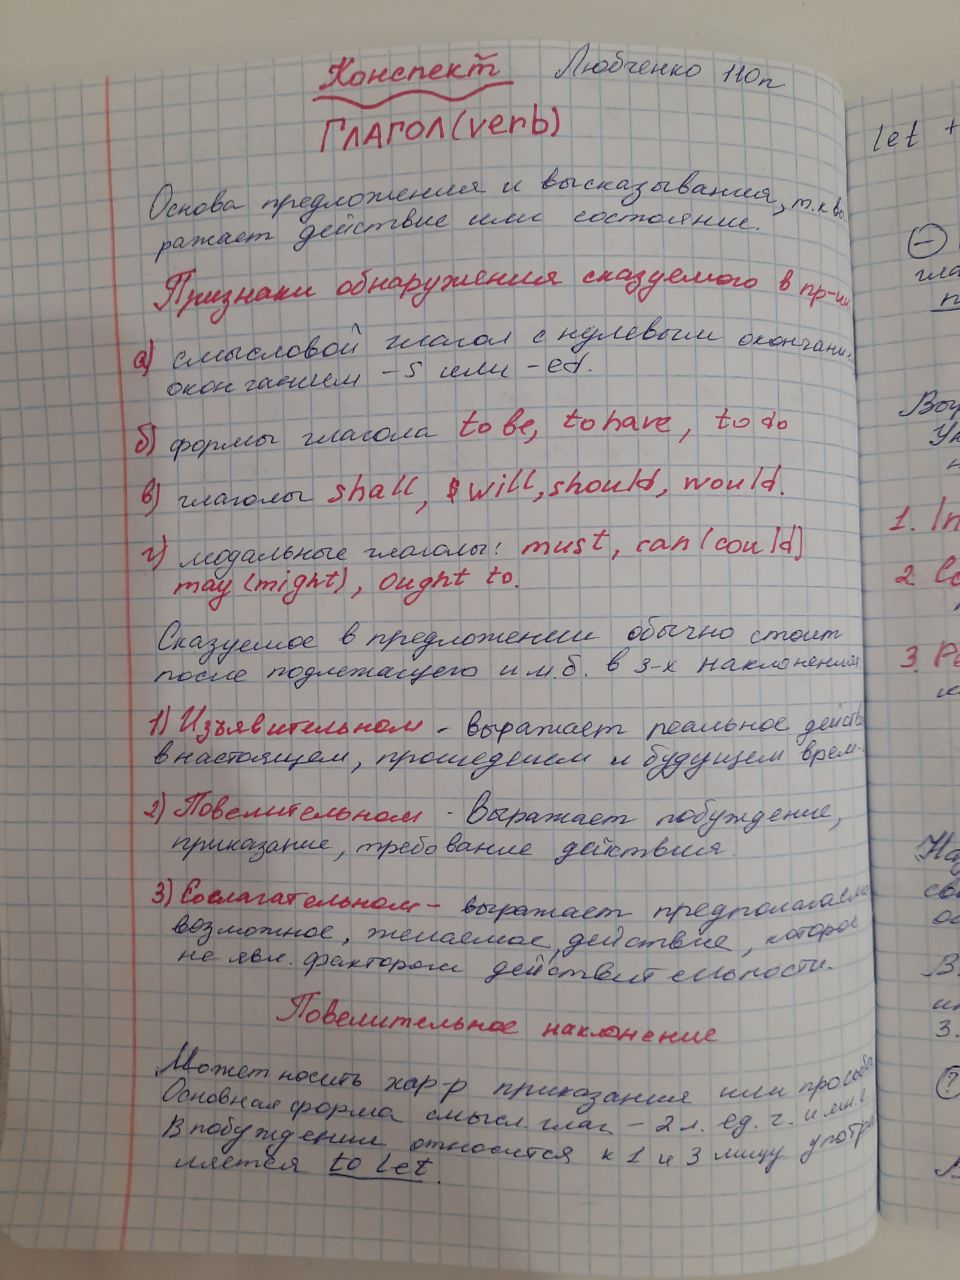 Конспект Любченко 110п
ГЛАГОЛ (verb)
Основа предложения и высказывания, т.к вы
ражает действие или состояние.
Признаки обнаружения сказуемого в пр-ии
а) смысловой глагол с нулевым окончани
окончанием -s или -ed.
б) формы глагола to be, to have, to do
в) глаголы shall, will, should, would.
г) модальные глаголы: must, can (could)
may (might), ought to.
Сказуемое в предложении обычно стоит
после подлежащего и м.б. в 3-х наклонениях
1) Изъявительном - выражает реальное действ
в настоящем, прошедшем и будущем врем.
2) Повелительном - Выражает побуждение,
приказание, требование действия.
3) Сослагательном - выражает предполагаемо
возможное, желаемое, действие, которое
не явл. фактором действительности.
Повелительное наклонение
Может носить хар-р приказания или просьбы
Основная форма смысл глаг - 2 л. ед. ч. и мн. ч.
В побуждении относится к 1 и 3 лицу употр
ляется to let.
let +
гла
1. In
2
3. Ре